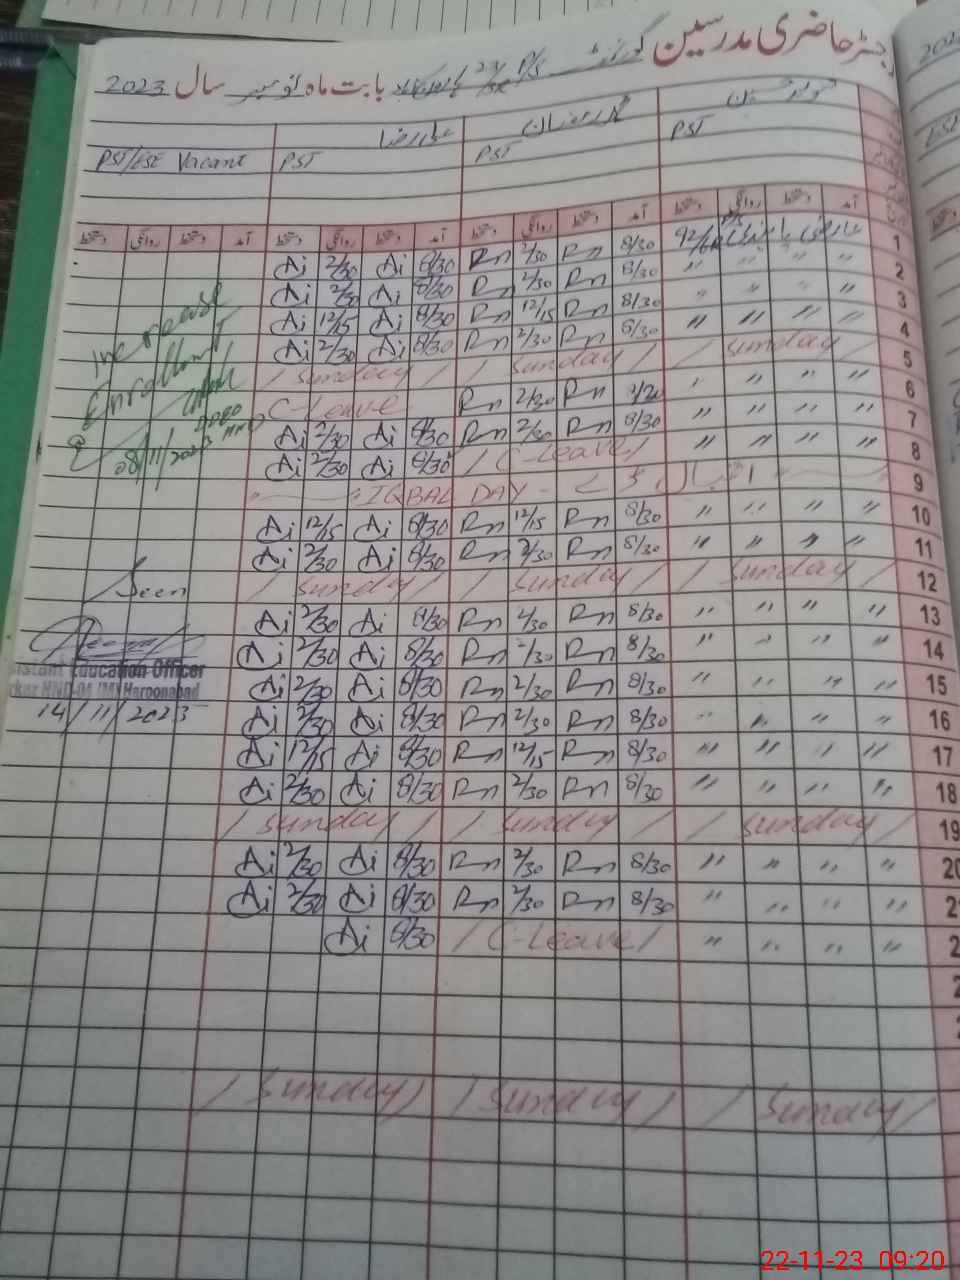 رجسٹر حاضری مدرسین گورنمنٹ P/S بابت ماہ نومبر سال 2023
PST/ESE Vacant PST PST PST
دستخط روانگی دستخط آمد دستخط روانگی دستخط آمد دستخط روانگی دستخط آمد دستخط روانگی دستخط آمد
Ai 2/30 Ai 8/30 Rn 2/30 Rn 8/30 1
Ai 2/30 Ai 8/30 Rn 2/30 Rn 8/30 " " " " 2
Ai 12/15 Ai 8/30 Rn 12/15 Rn 8/30 " " " " 3
Ai 2/30 Ai 8/30 Rn 2/30 Rn 8/30 " " " " 4
/ Sunday / / Sunday / / Sunday / 5
C-Leave Rn 2/30 Rn " " " " 6
Ai 2/30 Ai 8/30 Rn 2/30 Rn 8/30 " " " " 7
Ai 2/30 Ai 8/30 / C-Leave / " " " " 8
IQBAL DAY - اقبال ڈے 9
Ai 12/15 Ai 8/30 Rn 12/15 Rn 8/30 " " " " 10
Ai 2/30 Ai 8/30 Rn 2/30 Rn 8/30 " " " " 11
/ Sunday / / Sunday / / Sunday / 12
Ai 2/30 Ai 8/30 Rn 2/30 Rn 8/30 " " " " 13
Ai 2/30 Ai 8/30 Rn 2/30 Rn 8/30 " " " " 14
Ai 2/30 Ai 8/30 Rn 2/30 Rn 8/30 " " " " 15
Ai 2/30 Ai 8/30 Rn 2/30 Rn 8/30 " " " " 16
Ai 12/15 Ai 8/30 Rn 12/15 Rn 8/30 " " " " 17
Ai 2/30 Ai 8/30 Rn 2/30 Rn 8/30 " " " " 18
/ Sunday / / Sunday / / Sunday / 19
Ai 2/30 Ai 8/30 Rn 2/30 Rn 8/30 " " " " 20
Ai 2/30 Ai 8/30 Rn 2/30 Rn 8/30 " " " " 2
Ai 8/30 / C-Leave / " " " " 2
/ Sunday / / Sunday / / Sunday /
Increase
Enrollment
08/11/2023
Seen
istant Education Officer
HND-04 (M) Haroonabad
14/11/2023
22-11-23 09:20